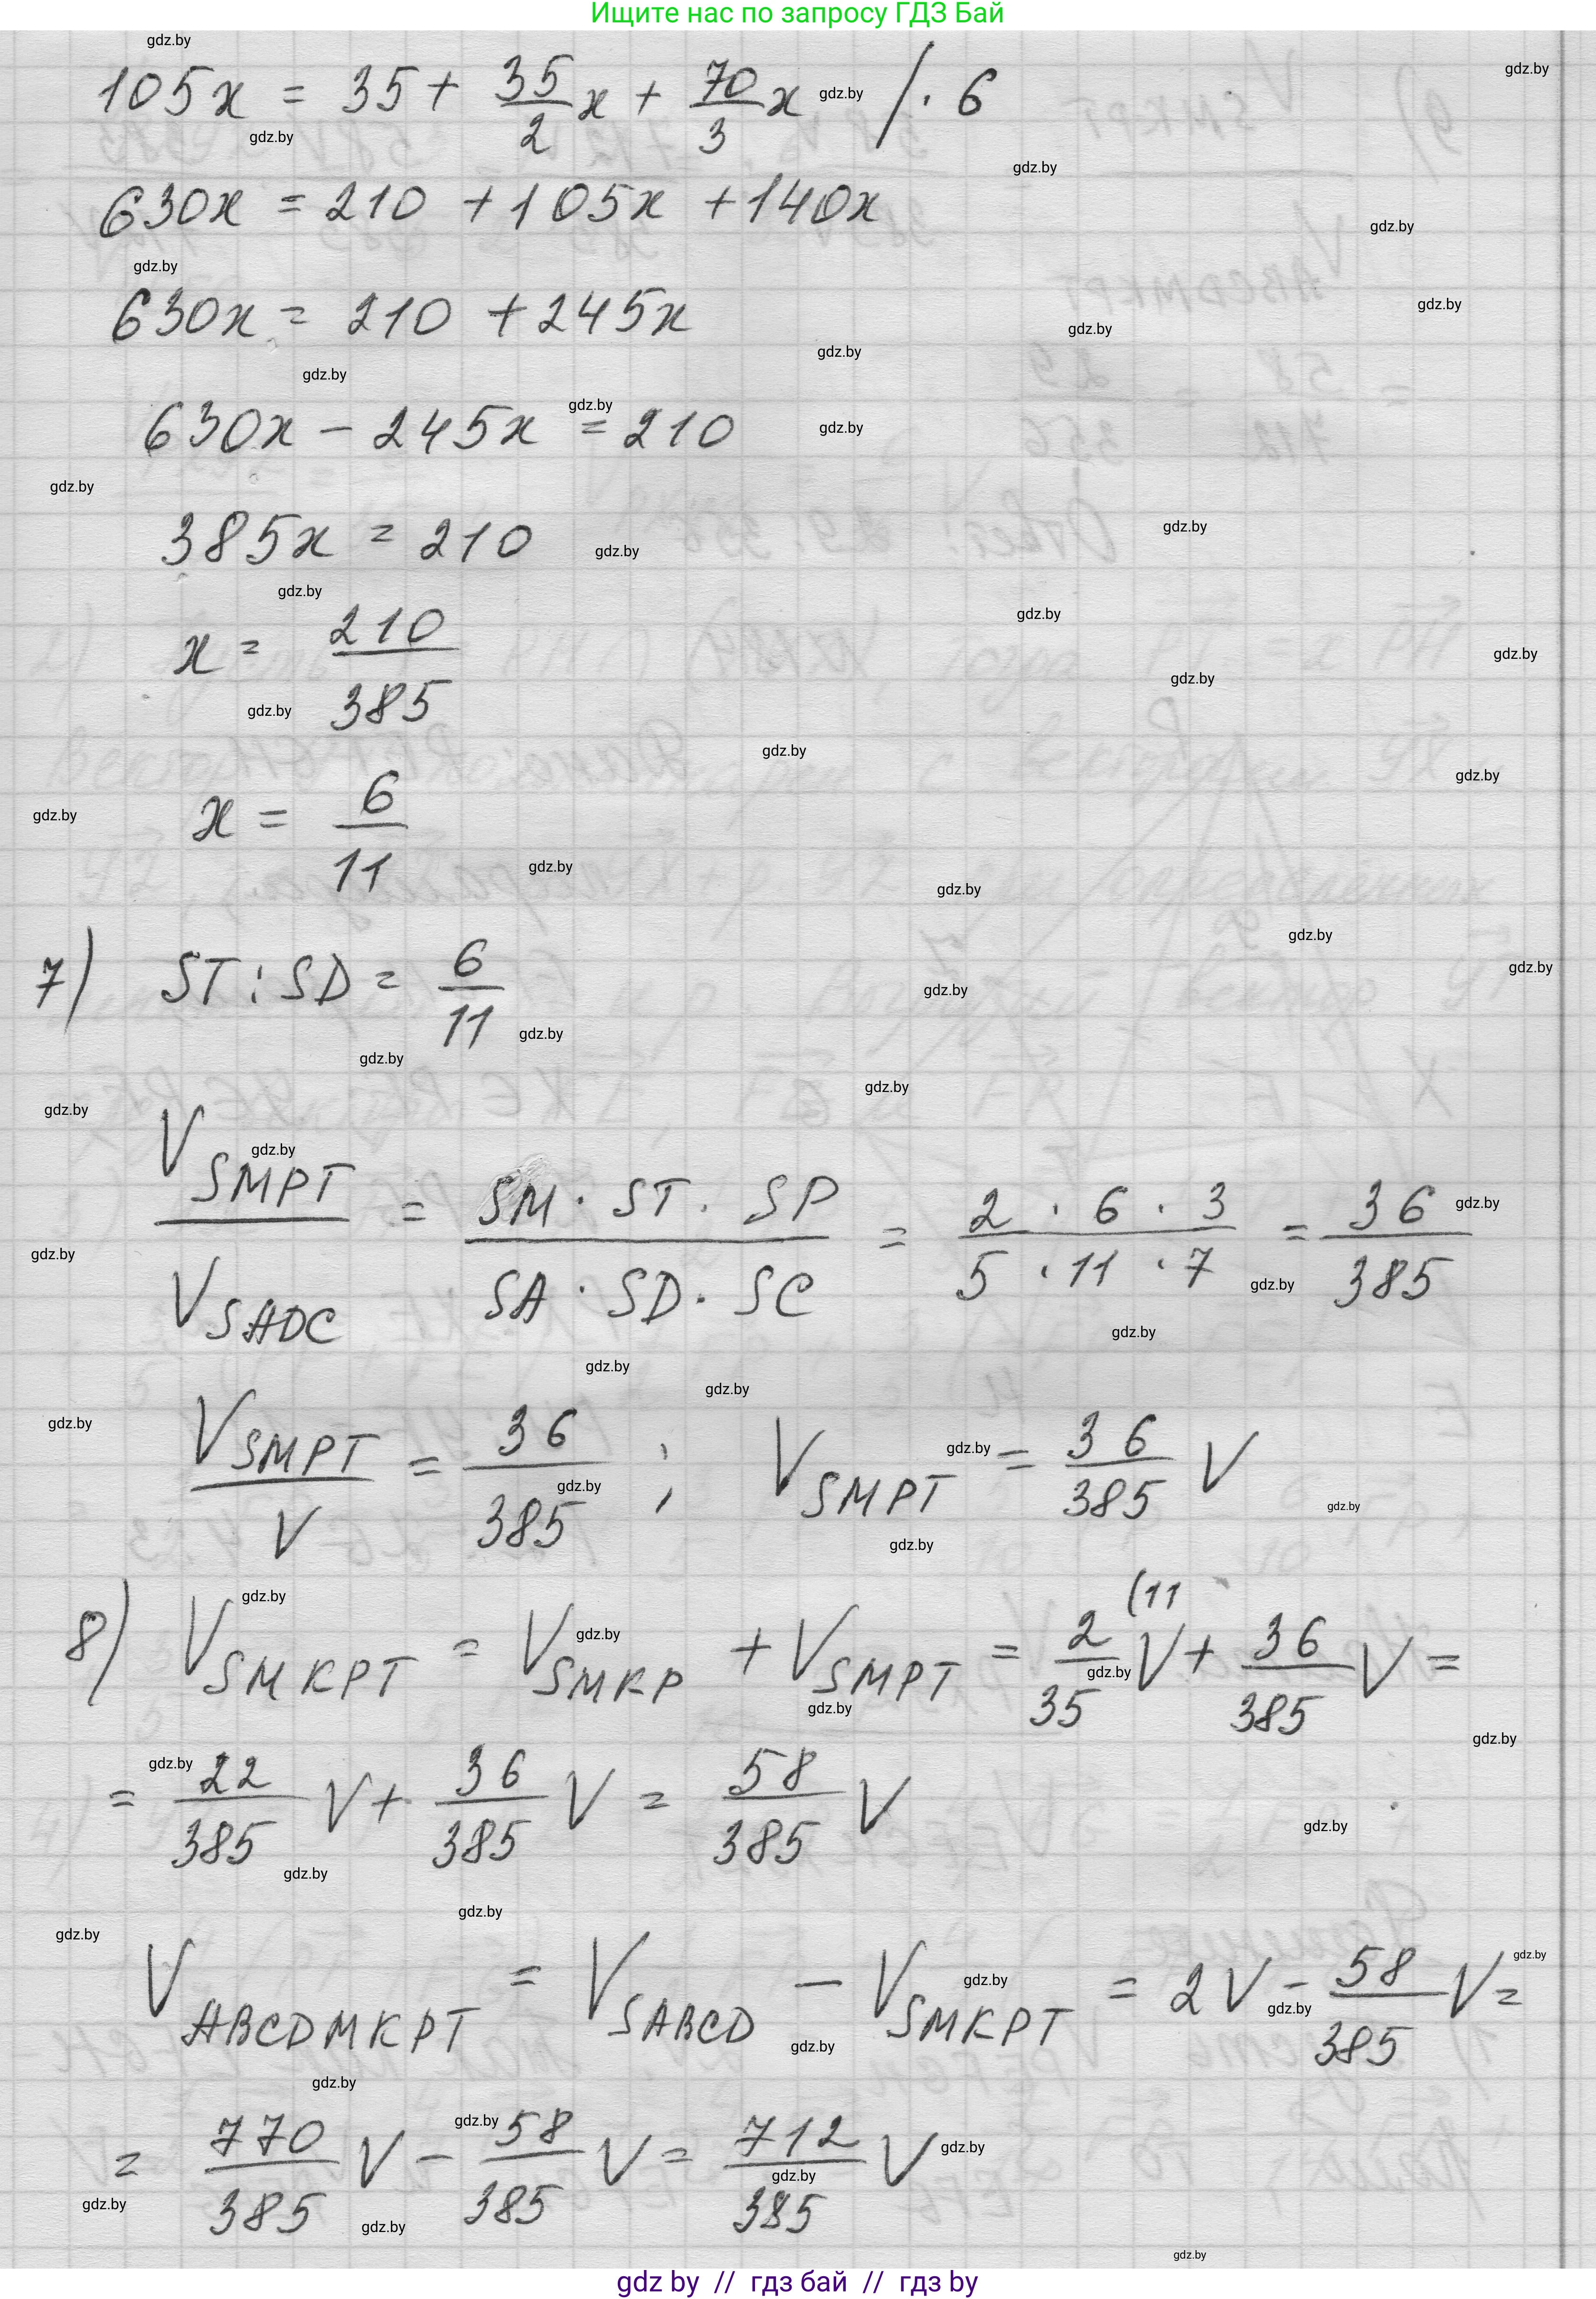 Ищите нас по запросу ГДЗ Бай
105x = 35 + 35/2 x + 70/3 x / · 6
630x = 210 + 105x + 140x
630x = 210 + 245x
630x - 245x = 210
385x = 210
x = 210/385
x = 6/11
7) ST : SD = 6/11
V SMPT / V SADC = SM · ST · SP / SA · SD · SC = 2 · 6 · 3 / 5 · 11 · 7 = 36/385
V SMPT / V = 36/385 ; V SMPT = 36/385 V
8) V SMKPT = V SMKP + V SMPT = 2/35 (11 V + 36/385 V =
= 22/385 V + 36/385 V = 58/385 V
V ABCDMKPT = V SABCD - V SMKPT = 2V - 58/385 V =
= 770/385 V - 58/385 V = 712/385 V
gdz by // гдз бай // гдз by